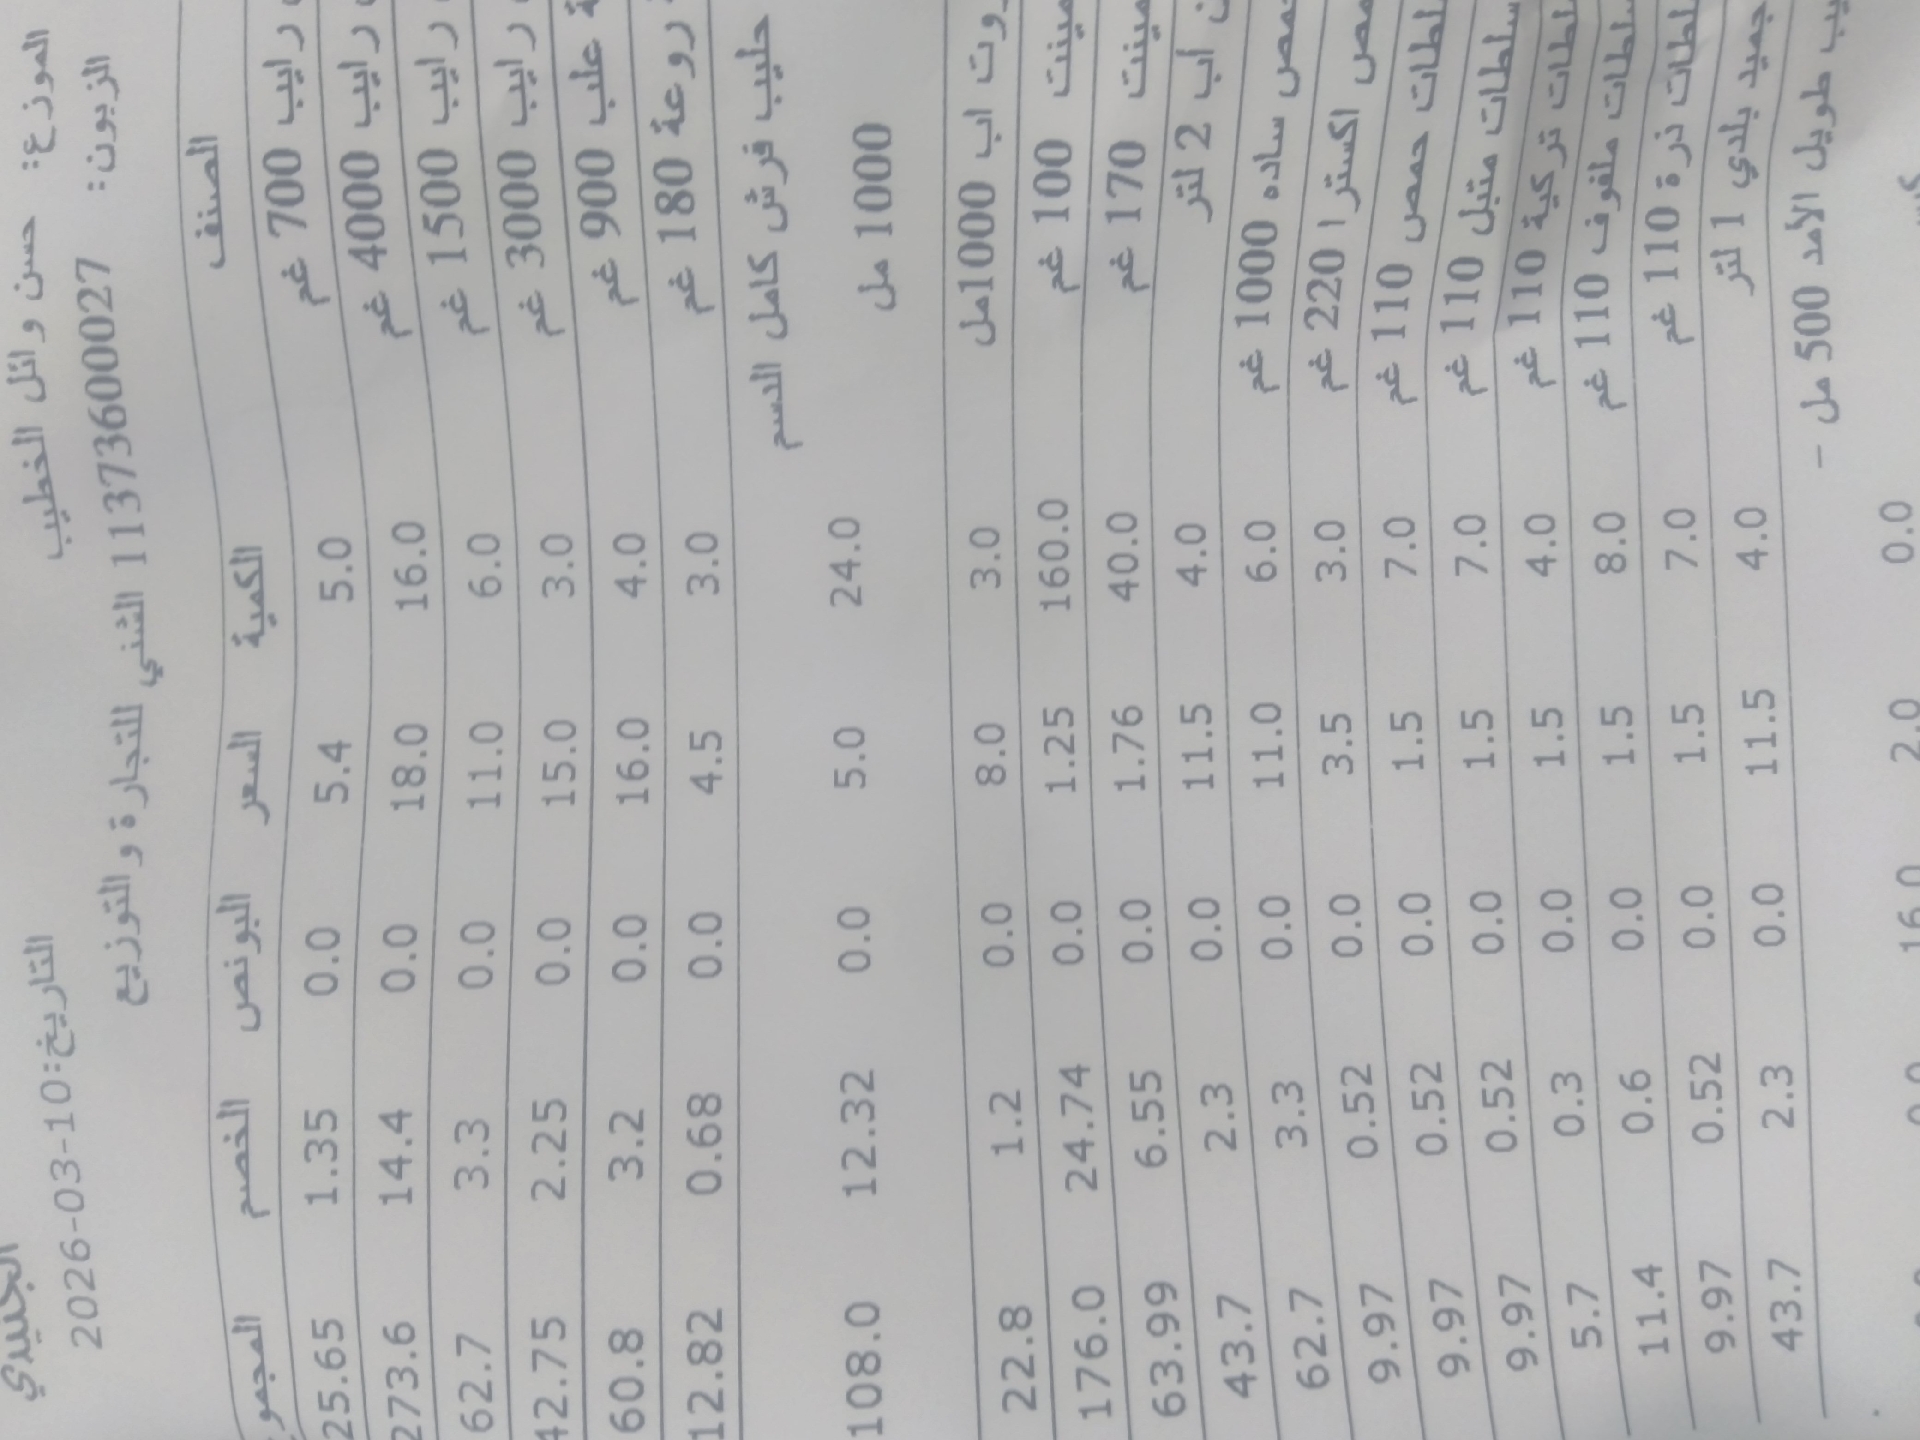 الجنيدي
التاريخ:10-03-2026
الموزع: حسن وائل الخطيب
الزبون: 11373600027 الشني للتجارة والتوزيع
الصنف الكمية السعر البونص الخصم المجمو
رايب 700 غم 5.0 5.4 0.0 1.35 25.65
رايب 4000 غم 16.0 18.0 0.0 14.4 273.6
رايب 1500 غم 6.0 11.0 0.0 3.3 62.7
رايب 3000 غم 3.0 15.0 0.0 2.25 42.75
علب 900 غم 4.0 16.0 0.0 3.2 60.8
روعة 180 غم 3.0 4.5 0.0 0.68 12.82
حليب فرش كامل الدسم
1000 مل 24.0 5.0 0.0 12.32 108.0
اب 1000مل 3.0 8.0 0.0 1.2 22.8
100 غم 160.0 1.25 0.0 24.74 176.0
170 غم 40.0 1.76 0.0 6.55 63.99
اب 2 لتر 4.0 11.5 0.0 2.3 43.7
ساده 1000 غم 6.0 11.0 0.0 3.3 62.7
اكسترا 220 غم 3.0 3.5 0.0 0.52 9.97
حمص 110 غم 7.0 1.5 0.0 0.52 9.97
سلطات متبل 110 غم 7.0 1.5 0.0 0.52 9.97
تركية 110 غم 4.0 1.5 0.0 0.3 5.7
ملفوف 110 غم 8.0 1.5 0.0 0.6 11.4
ذرة 110 غم 7.0 1.5 0.0 0.52 9.97
جميد بلدي 1 لتر 4.0 11.5 0.0 2.3 43.7
طويل الأمد 500 مل -
0.0 2.0 16.0 0.0